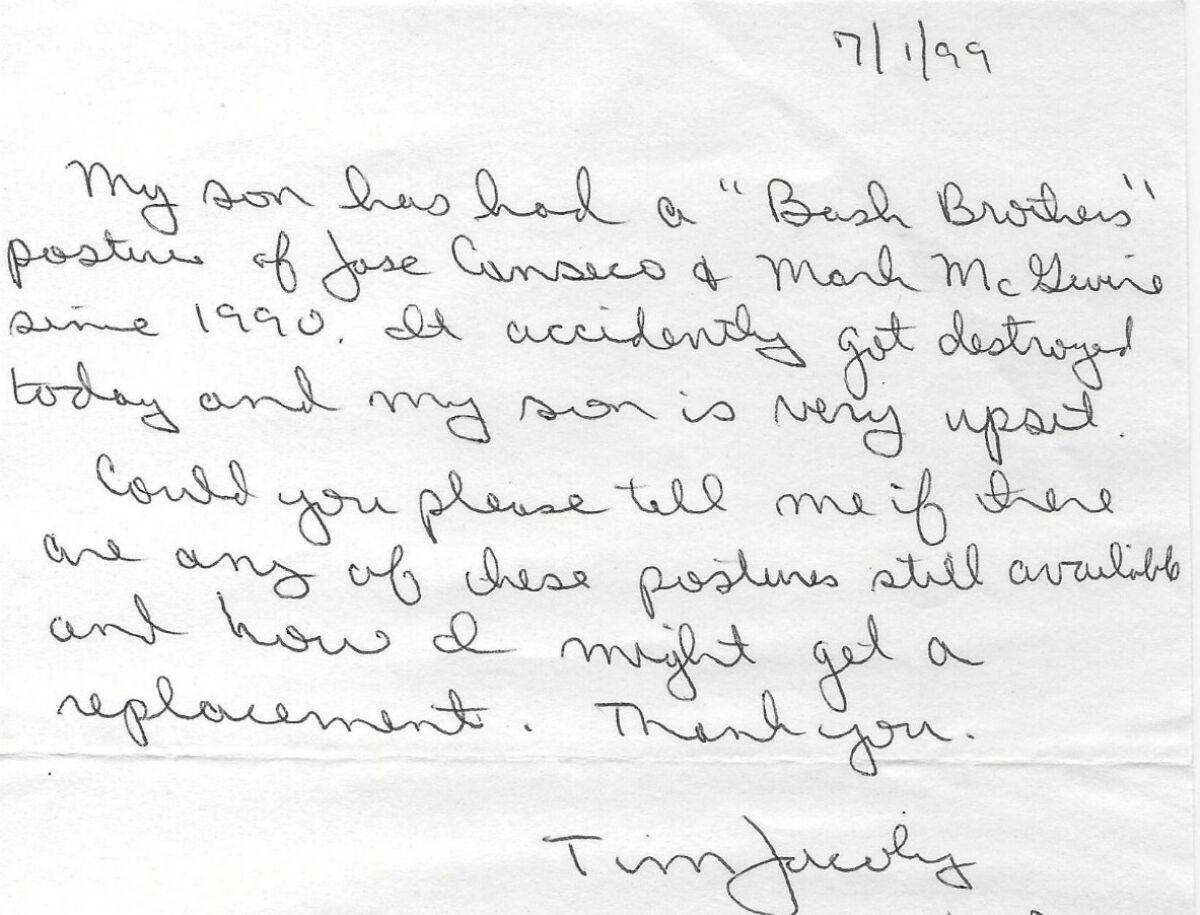 7/1/99
My son has had a "Bash Brothers"
posture of Jose Conseco & Mark McGwire
since 1990. It accidently got destroyed
today and my son is very upset.
Could you please tell me if there
are any of these postures still available
and how I might get a
replacement. Thank you.
Tim Jacoby